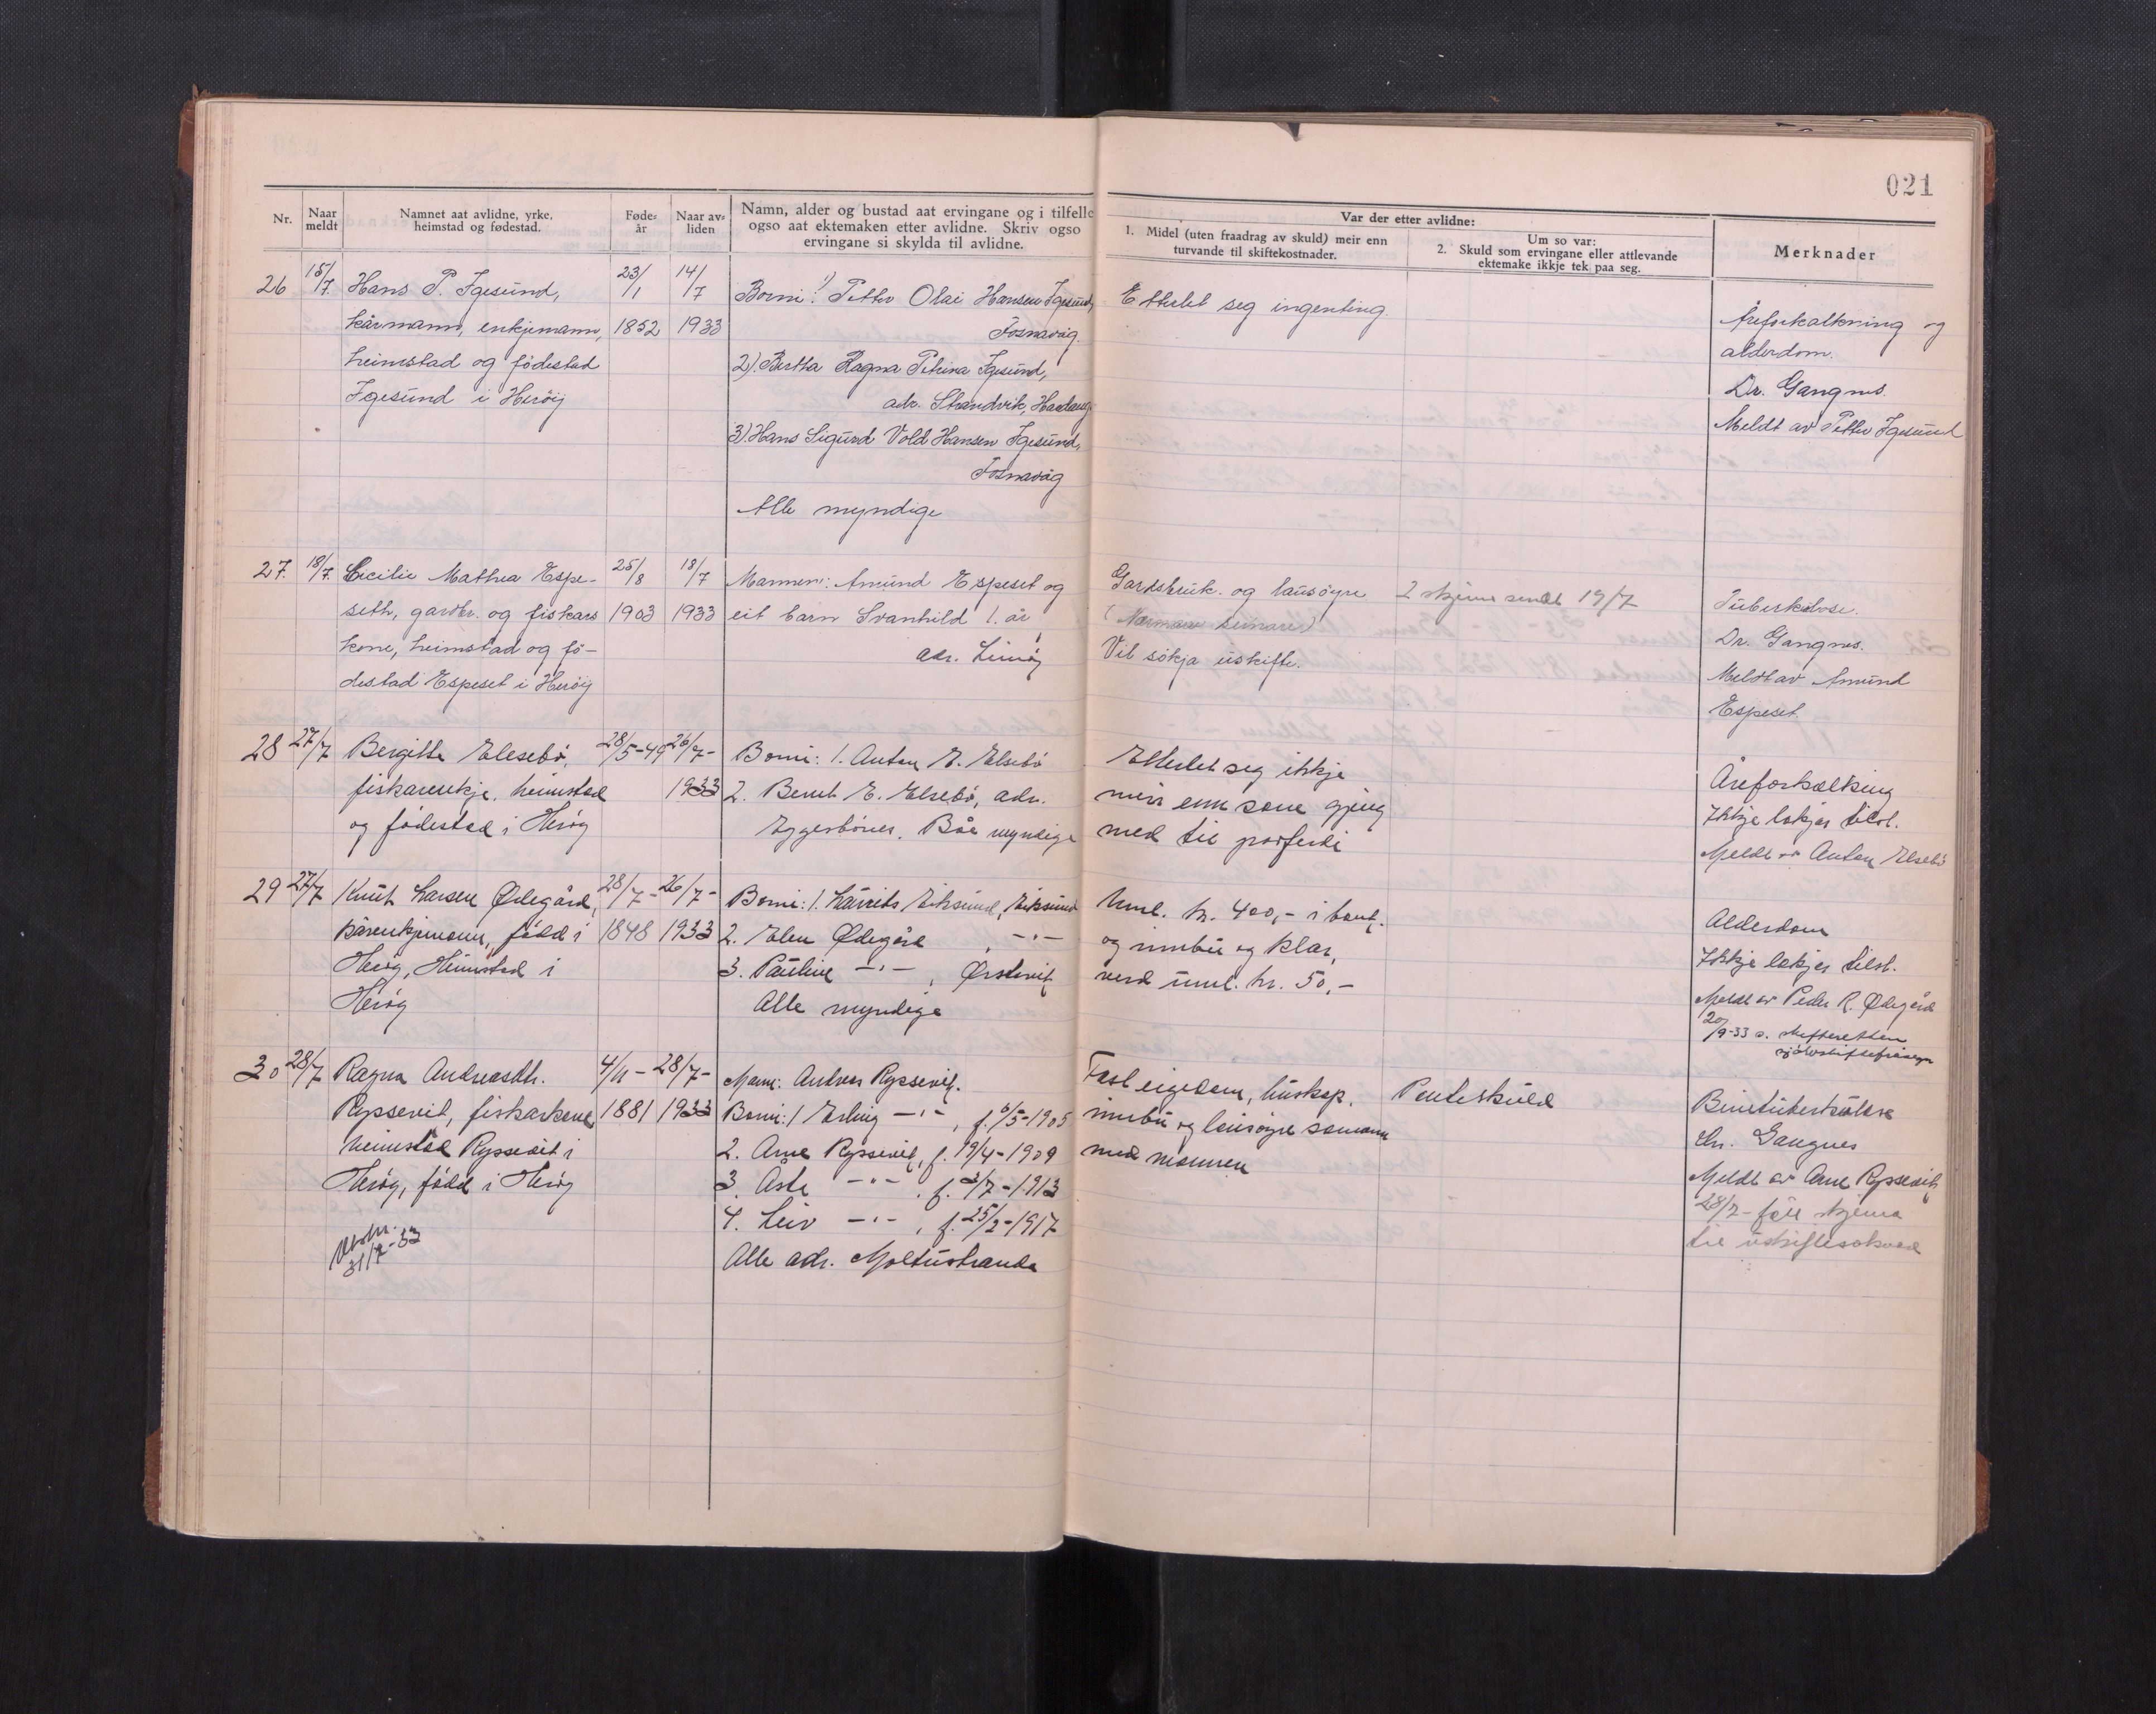 021
Nr.
Naar meldt
Namnet aat avlidne, yrke, heimstad og fødestad.
Føde-år
Naar av-liden
Namn, alder og bustad aat ervingane og i tilfelle
ogso aat ektemaken etter avlidne. Skriv ogso
ervingane si skylda til avlidne.
Var der etter avlidne:
1. Midel (uten fraadrag av skuld) meir enn
turvande til skiftekostnader.
Um so var:
2. Skuld som ervingane eller attlevande
ektemake ikkje tek paa seg.
Merknader
26
15/7.
Hans P. Igesund,
kårmann, enkjemann,
heimstad og födestad
Igesund i Heröy
23/1
1852
14/7
1933
Borni: 1) Petter Olai Hansen Igesund,
Fosnavåg.
2). Bertha Ragna Petrina Igesund,
adr. Strandvik, Hardang.
3). Hans Sigurd Vold Hansen Igesund,
Fosnavåg
Alle myndige
Etterlet seg ingenting.
Åreforkalkning og
alderdom.
Dr. Gangnes.
Meldt av Petter Igesund
27.
18/7.
Cicilie Mathea Espe-
seth, gardbr. og fiskars
kone, heimstad og fö-
destad Espeset i Heröy
25/8
1903
18/7
1933
Mannen: Amund Espeset og
eit barn Svanhild 1. år
adr. Leinöy
Gardsbruk. og lausöyre
Vil sökja uskifte.
2 skjema sendt 19/7
Tuberkulose.
Dr. Gangnes.
Meldt av Amund
Espeset.
28
27/7
Bergitte Elesebö,
fiskarenkje, heimstad
og födestad i Heröy
28/5-49
26/7-
1933
Borni: 1. Anton E. Elsebö
2. Bernt E. Elsebö, adr.
Eggesbönes. Båe myndige
Etterlet seg ikkje
meir enn som gjeng
med til jordferdi
Åreforkalking
Ikkje lækjar tilst.
Meldt av Anton Elsebö
29
27/7
Knut Larsen Ødegård,
kårenkjemann, född i
Heröy, Heimstad i
Heröy
28/7-
1848
26/7-
1933
Borni: 1. Laurits Eiksund, Eiksund
2. Elen Ødegård , -"-
3. Pauline -"- , Ørstavik
Alle myndige
Uml. kr. 400,- i bank.
og innbu og klær,
verd uml. kr. 50,-
Alderdom
Ikkje lækjar tilst.
Meldt av Peder R. Ødegård
20/9-33 s. skifteretten
30
28/7
Ragna Andreasdtr.
Røysevik, fiskarkone
heimstad Røysevik i
Heröy, född i Heröy
31/7-33
4/11-
1881
28/7-
1933
Mann: Andreas Røysevik.
Borni: 1 Erling -"- , f. 6/5-1905
2. Arne Røysevik, f. 19/4-1909
3. Åste -"- , f. 3/7-1913
4. Leiv -"- , f. 25/2-1917
Alle adr. Moltustranda
Fast eigedom, buskap,
innbu og lausöyre saman
med mannen
Panteskuld
Beintuberkulose
Dr. Gangnes
Meldt av Arne Røysevik
28/7- fekk skjema
til uskiftesöknad